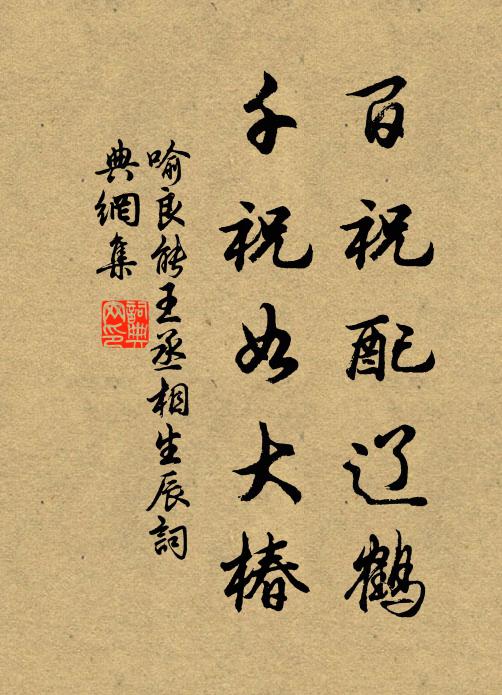 百祝配辽鹤
千祝如大椿
喻良能王丞相生辰詞
典網集
詞典
网印